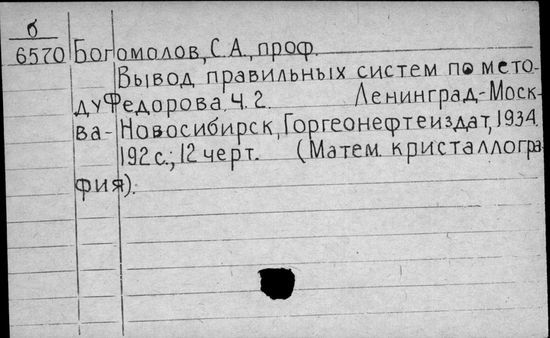 б
6570 Богомолов, С.А., проф.
Вывод правильных систем по мето-
ду Федорова. Ч. 2. Ленинград-Моск-
ва-Новосибирск, Горгеонефтеиздат, 1934.
192 с.; 12 черт. (Матем. кристаллогра-
фия).